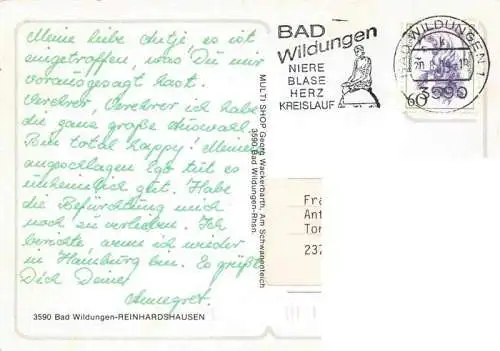 Meine liebe Antje, es ist
eingetroffen, was Du mir
vorausgesagt hast.
Verehrer, Verehrer ich habe
die ganz große Auswahl.
Bin total happy! Meinem
angeschlagen Ego tut es
unheimlich gut. Habe
die Befürchtung mich
noch zu verlieben. Ich
berichte, wenn ich wieder
in Hamburg bin. Es grüßt
Dich Deine
Annegret.
3590 Bad Wildungen-REINHARDSHAUSEN
MULTI SHOP Georg Wackerbarth, Am Schwanenteich
3590 Bad Wildungen-Rhsn.
BAD
Wildungen
NIERE
BLASE
HERZ
KREISLAUF
BAD WILDUNGEN 1
3590
60
Fra
Ant
Tor
232